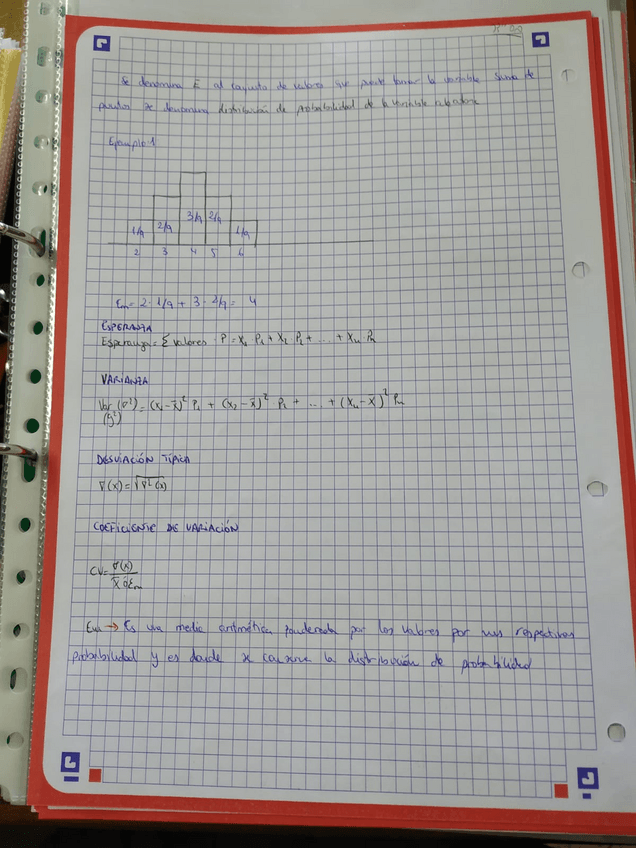 Se denomina E al conjunto de valores que puede tomar la variable Suma de
puntos se denomina distribución de probabilidad de la variable aleatoria
Ejemplo 1
1/9 2/9 3/9 2/9 1/9
2 3 4 5 6
Em= 2· 1/9 + 3 · 2/9 = 4
ESPERANZA
Esperanza = Σ valores · P = X₁ P₁ + X₂ P₂ + ... + Xn Pn
VARIANZA
Var (σ²) = (X₁ - x̄)² P₁ + (X₂ - x̄)² P₂ + ... + (Xn - x̄)² Pn
(S²)
DESVIACIÓN TÍPICA
σ(x) = √σ²(x)
COEFICIENTE DE VARIACIÓN
CV = σ(x) / x̄ ó Em
Em → Es una media aritmética ponderada por los valores por sus respectivas
probabilidad y es donde se la distribución de probabilidad